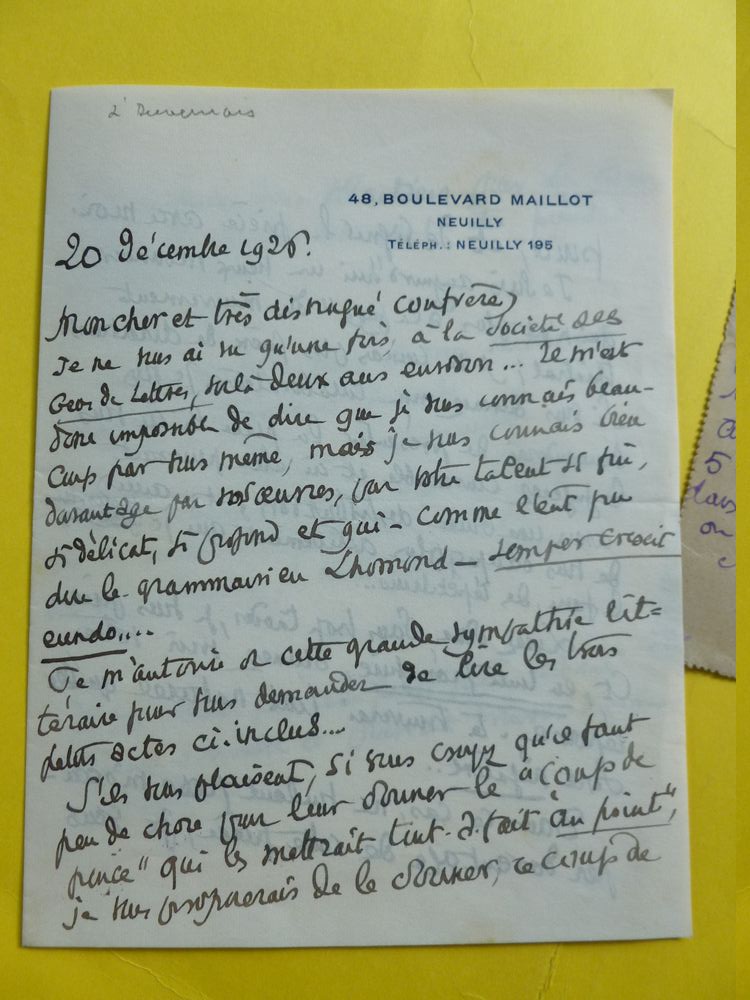 48, BOULEVARD MAILLOT
NEUILLY
TÉLÉPH. : NEUILLY 195
20 Décembre 1926.
Mon cher et très distingué confrère,
Je ne vous ai vu qu'une fois, à la Société des
Gens de Lettres, voilà deux ans environ... Il m'est
donc impossible de dire que je vous connais beau-
coup par vous même, mais je vous connais bien
davantage par vos œuvres, par votre talent si fin,
si délicat, si profond et qui - comme l'eût pu
dire le grammairien Lhomond - semper crescit
eundo....
Je m'autorise de cette grande sympathie lit-
téraire pour vous demander de lire les trois
petits actes ci-inclus....
S'ils vous plaisent, si vous croyez qu'il faut
peu de chose pour leur donner le "coup de
pouce" qui les mettrait tout à fait "au point",
je vous proposerais de le donner, ce coup de
5
on